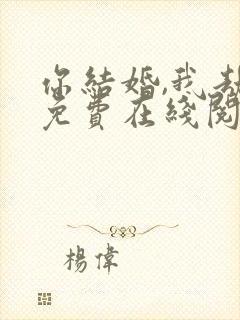 你結婚,我
免費在綫閱
楊偉